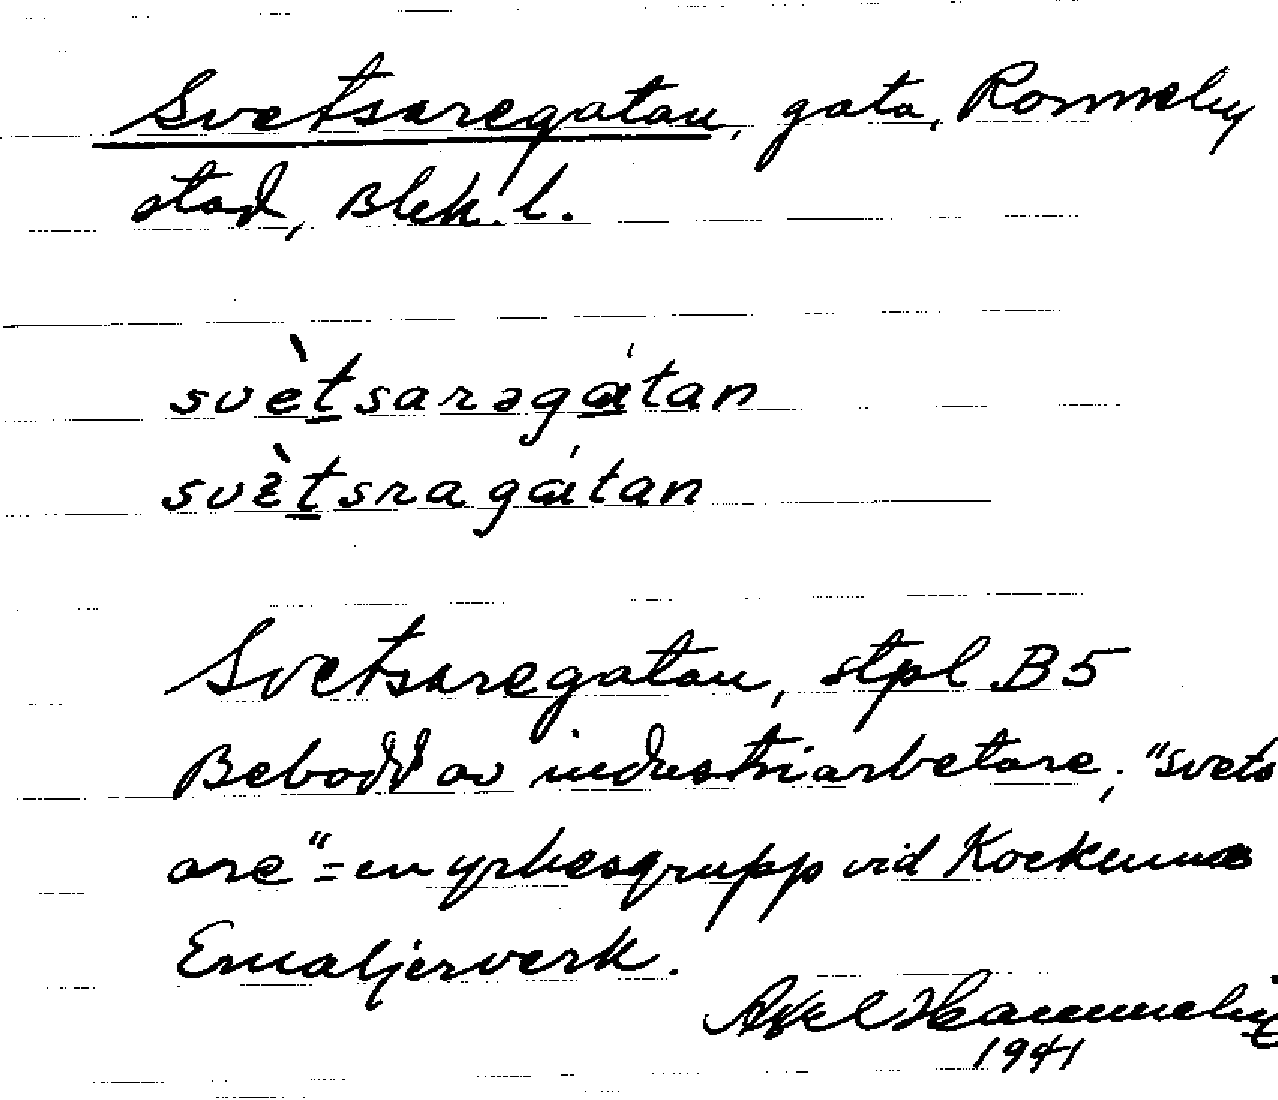 Svetsaregatan, gata, Ronneby
stad, Blek. l.
svètsarəgátan
svètsragátan
Svetsaregatan, stpl B5
Bebodd av industriarbetare; "svets
are" = en yrkesgrupp vid Kockums
Emaljerverk.
Axel
1941